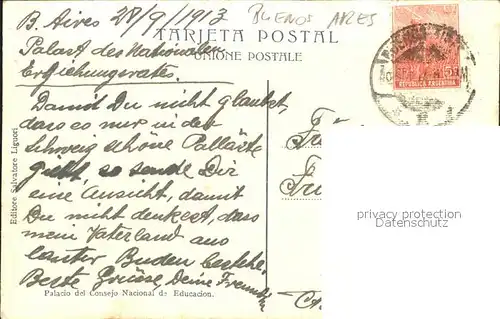 B. Aires 28/9/1913 BUENOS AIRES
TARJETA POSTAL
UNIONE POSTALE
Palast des Nationalen
Erziehungsrates.
Damit Du nicht glaubst,
dass es nur in der
Schweiz schöne Palläste
giebt so sende Dir
eine Ansicht, damit
Du nicht denkest, dass
mein Vaterland aus
lauter Buden bestehe.
Beste Grüsse, Deine
Editore Salvatore Liguori
Palacio del Consejo Nacional de Educacion.
REPUBLICA ARGENTINA
privacy protection
Datenschutz